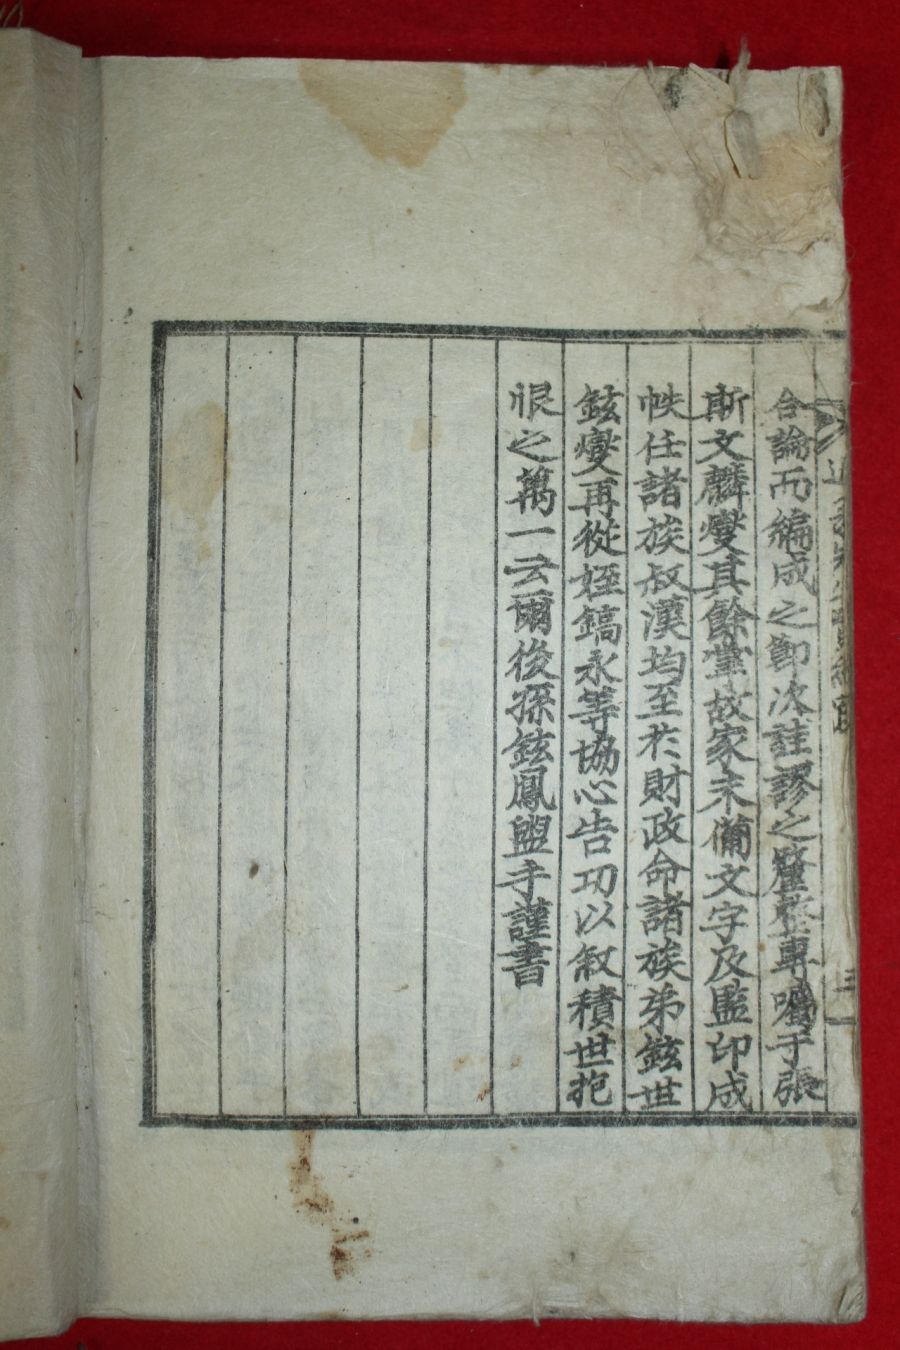 合論而編成之節次註謬之釐整專囑于張
斯文麟燮其餘蒐故家未備文字及監印成
帙任諸族叔漢均至於財政命諸族弟鉉世
鉉燮再從姪鎬永等協心告功以叙積世抱
恨之萬一云爾後孫鉉鳳盥手謹書
三